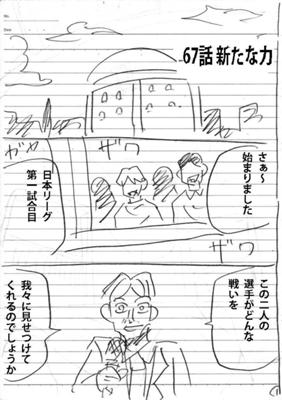 67話 新たな力
ザワ
ガヤ
さぁ〜
始まりました
日本リーグ
第一試合目
ザワ
この二人の
選手がどんな
戦いを
我々に見せつけて
くれるのでしょうか
1